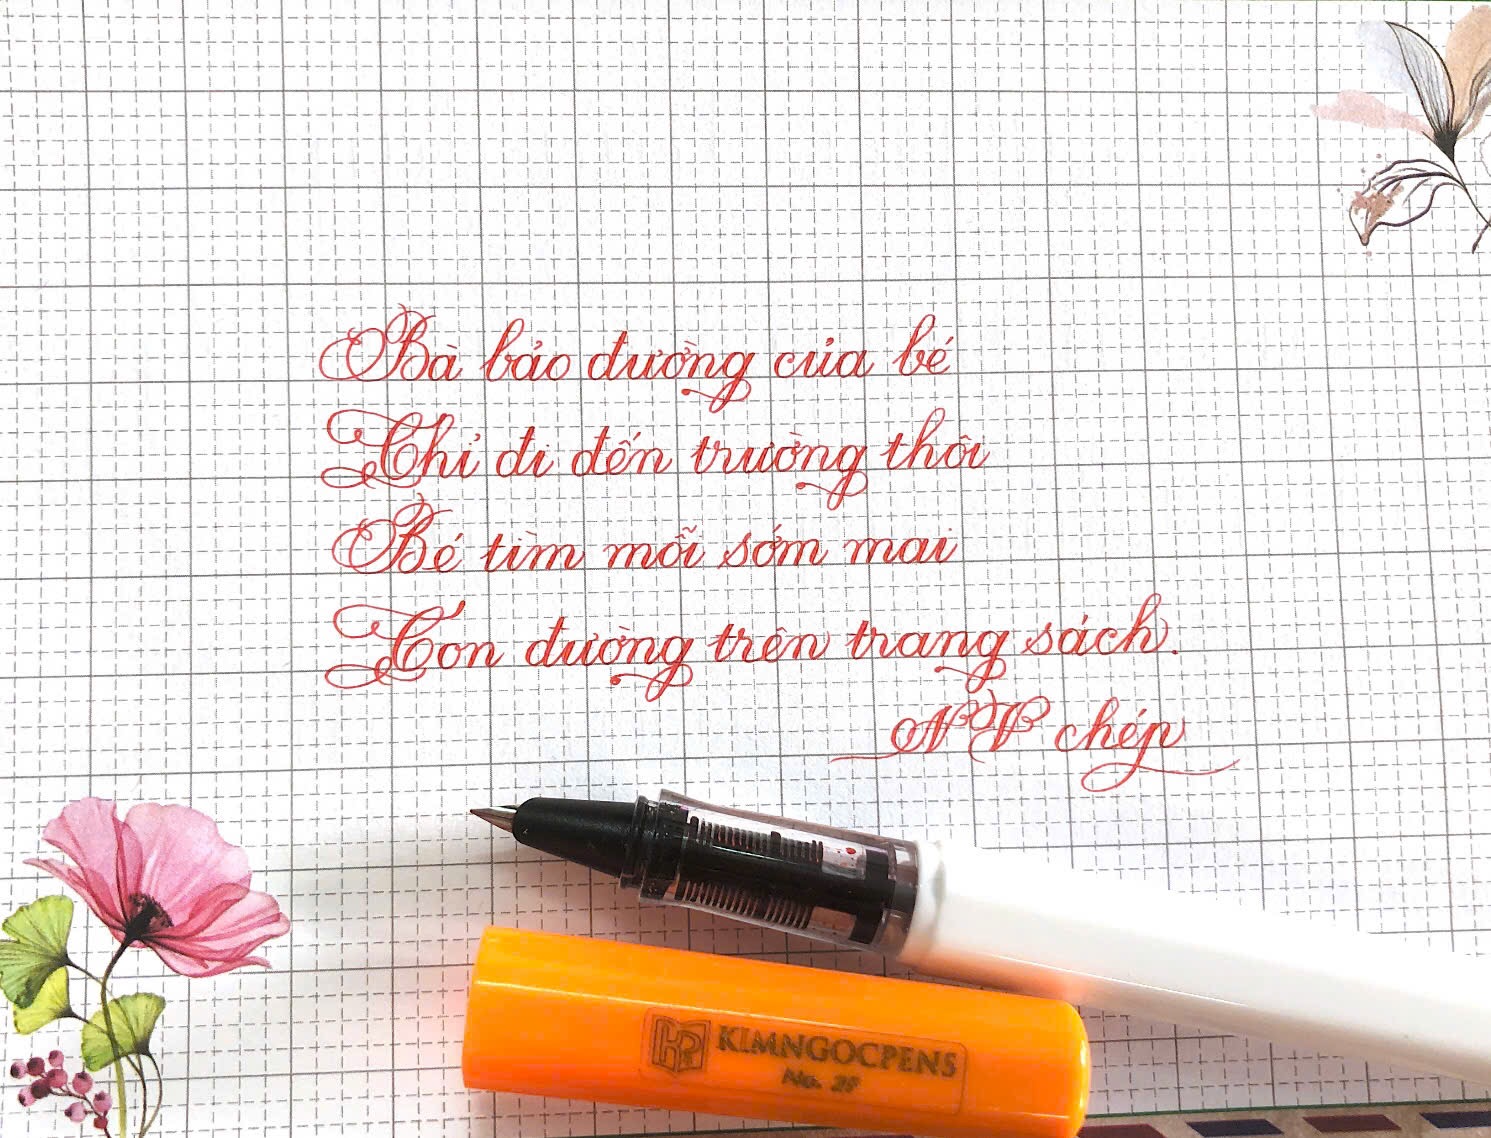 Bà bảo đường của bé
Chỉ đi đến trường thôi
Bé tìm mỗi sớm mai
Con đường trên trang sách.
chép
KIMNGOCPENS
No. 2F